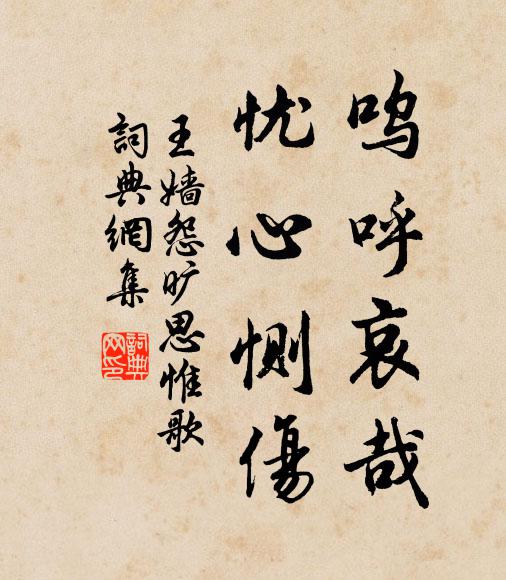 呜呼哀哉
忧心恻傷
王嫱怨旷思惟歌
詞典網集
詞典
网印